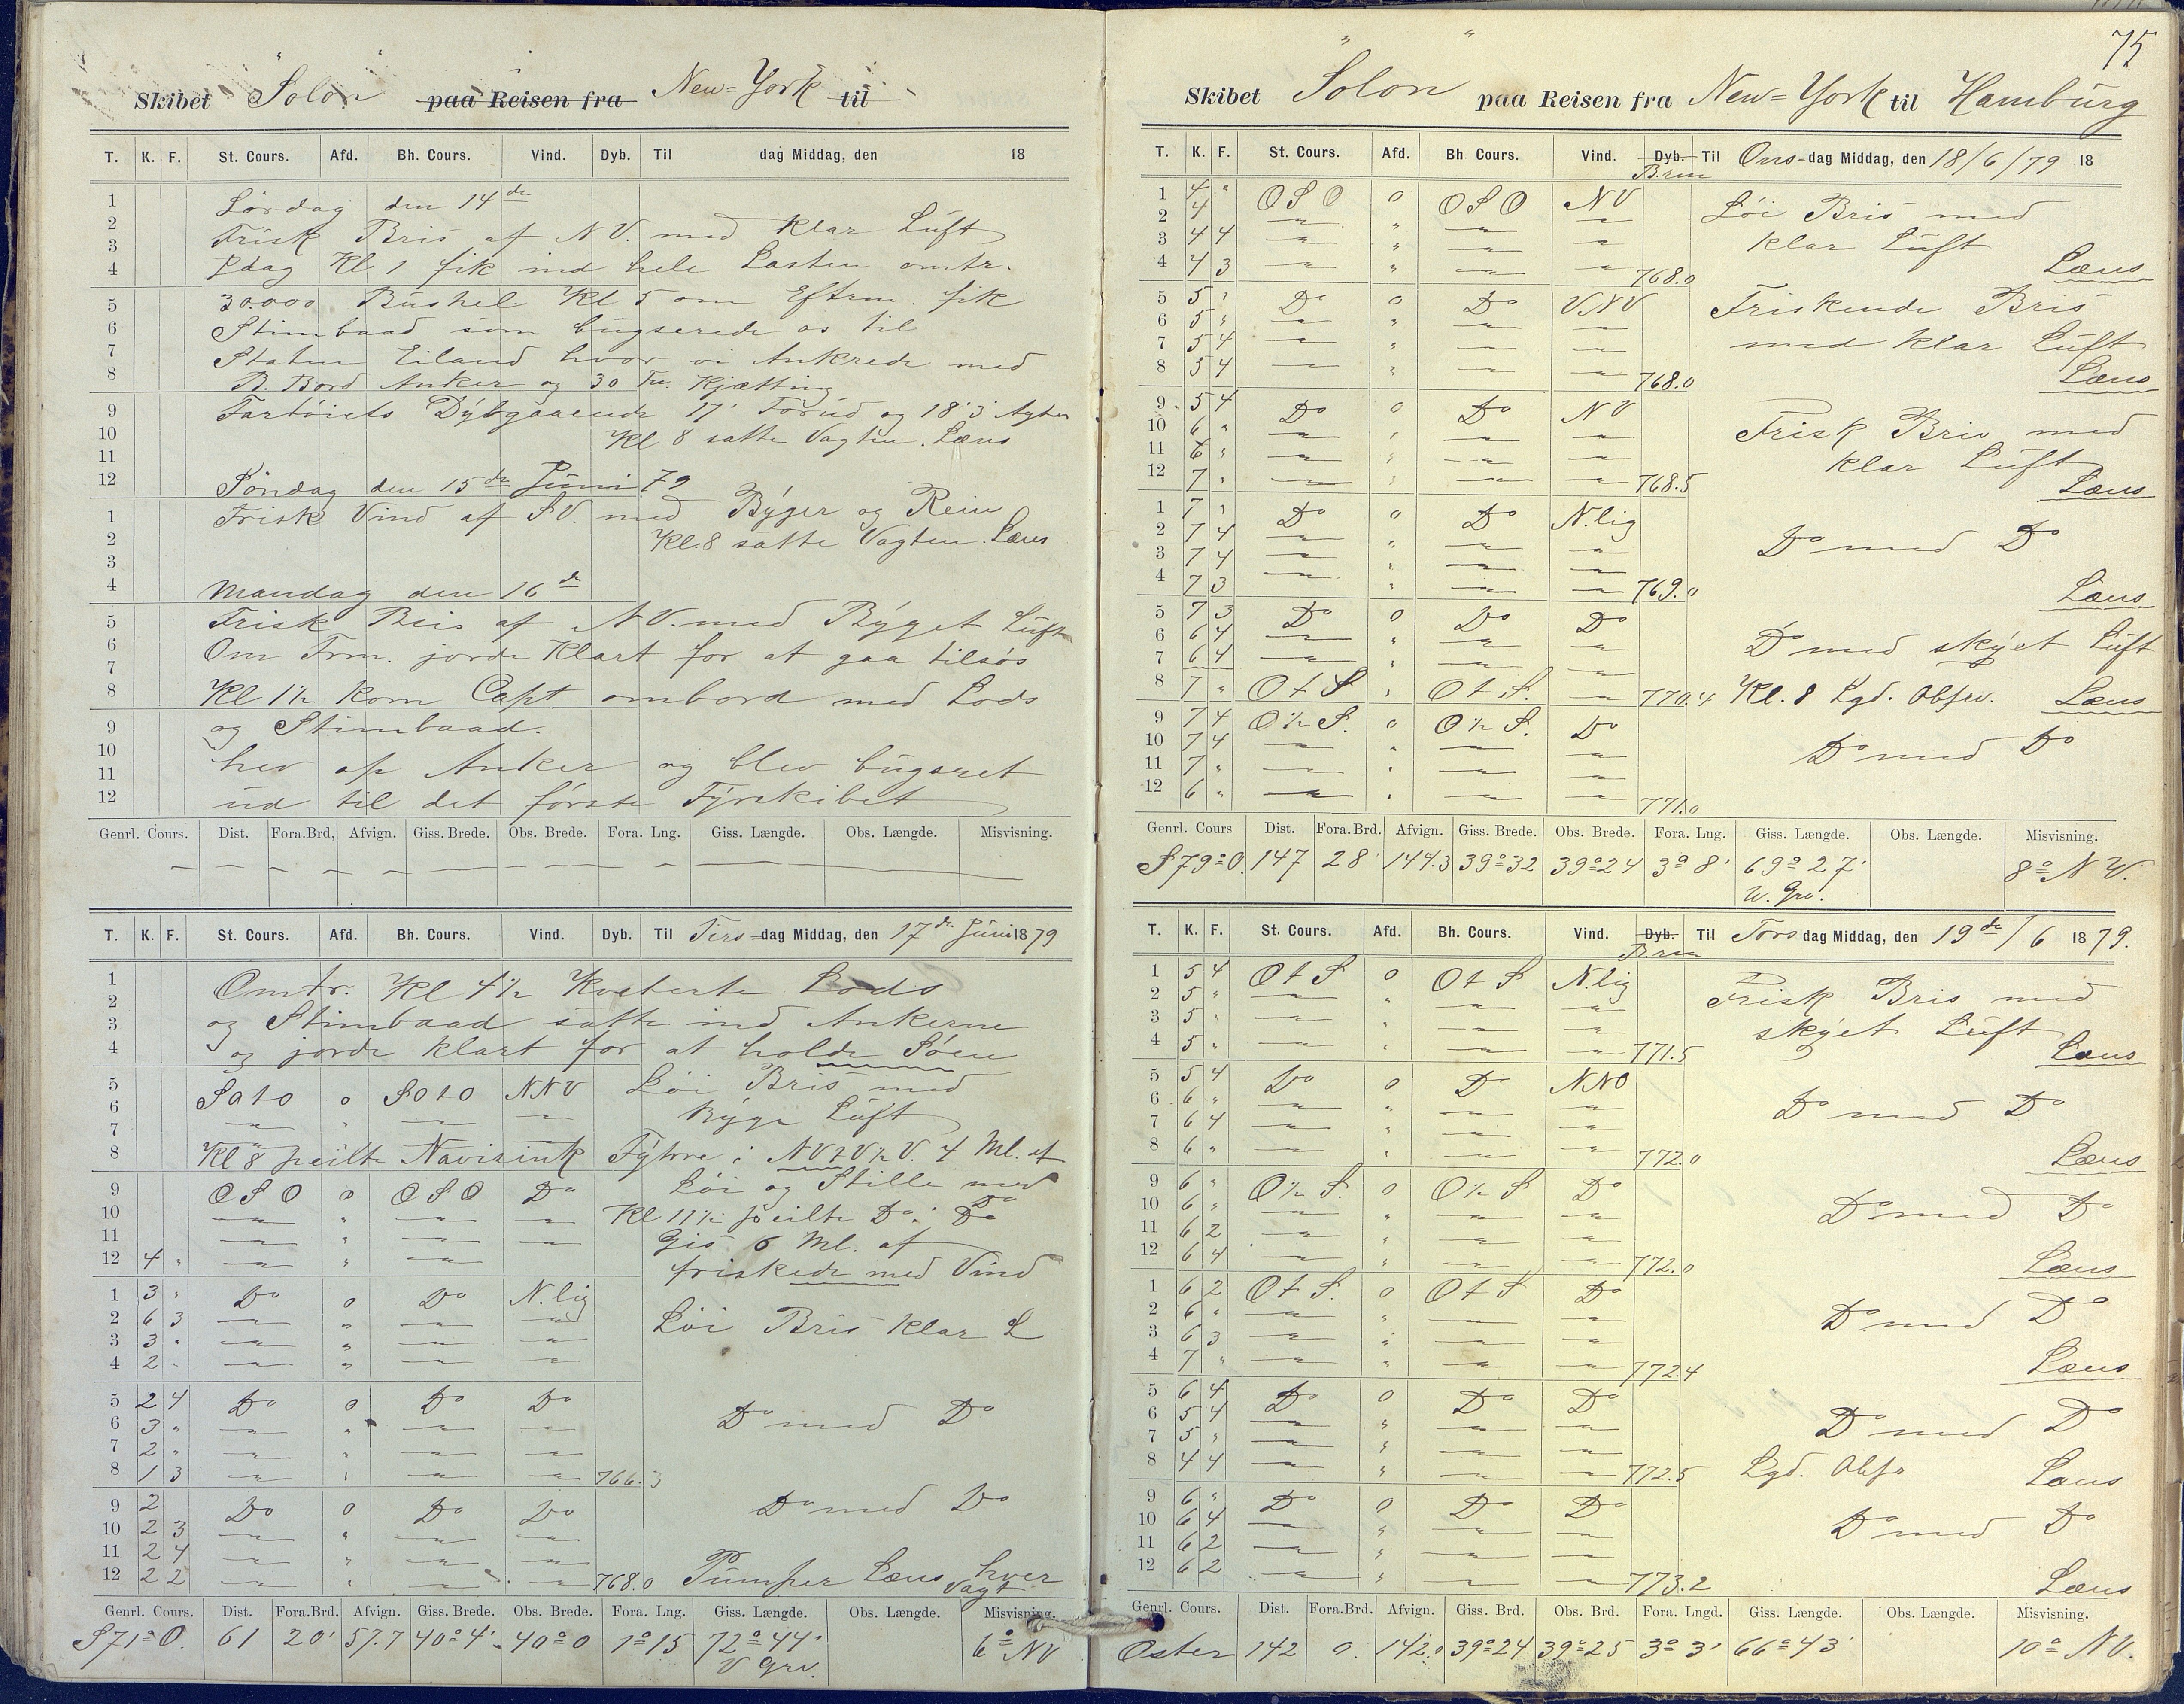 Skibet "Solon" paa Reisen fra New=York til
T. K. F. St. Cours. Afd. Bh. Cours. Vind. Dyb. Til dag Middag, den 18
1 Lørdag den 14de
2 Frisk Bris af NV. med klar Luft
3
4 Idag Kl 1 fik ind hele Lasten omtr.
5 30.000 Bushel. Kl 5 om Eftrm. fik
6 Stimbaad som bugserede os til
7 Staten Eiland hvor vi Ankrede med
8 B. Bord Anker og 30 Fv. Kjætting
9 Fartøiets Dybgaaende 17' Forud og 18'3 Agter
10 Kl 8 satte Vagten. Læns
11
12 Søndag den 15de Juni 79
1 Frisk Vind af SV. med Byger og Rein
2 Kl.8 satte Vagten. Læns
3
4 Mandag den 16de
5 Frisk Bris af NV. med Byget Luft
6 Om Frm. jorde Klart for at gaa tilsøs
7
8 Kl 1½ kom Capt ombord med Lods
9 og Stimbaad.
10 hev op Anker og blev bugseret
11
12 ud til det første Fyrskibet
Genrl. Cours. Dist. Fora.Brd, Afvign. Giss. Brede. Obs. Brede. Fora. Lng. Giss. Længde. Obs. Længde. Misvisning.
— — — — — — — — —
T. K. F. St. Cours. Afd. Bh. Cours. Vind. Dyb. Til Tirs=dag Middag, den 17de Juni 1879
1 Omtr. Kl 4½ Kviterte Lods
2 og Stimbaad satte ind Ankerne
3
4 og jorde klart for at holde Søen
5 SOtO 0 SOtO NNV Løi Bris med
6 Byge Luft
7
8 Kl 8 peilte Navisink Fyhrne i NVtV½V. 4 Ml. af
9 OSO 0 OSO Do Løi og Stille med Do
10 — " — — Kl 11½ peilte Do. i Do
11 — " — — Gis 6 Ml. af
12 4 " — " — friskede med Vind
1 3 " Do 0 Do N.lig
2 6 3 — " — — Løi Bris klar L
3 3 " — " — —
4 2 " — " — —
5 2 4 Do 0 Do Do
6 3 " — " — — Do med Do
7 2 " — " — —
8 1 3 — " — — 766.3
9 2 Do 0 Do Do Do med Do
10 2 3 — " — —
11 2 4 — " — —
12 2 2 — " — — 768.0 Pumper Læns hver Vagt
Genrl. Cours. Dist. Fora.Brd. Afvign. Giss. Brede. Obs. Brede. Fora. Lng. Giss. Længde. Obs. Længde. Misvisning.
S71°O. 61 20' 57.7 40°4' 40°0 1°15 72°44' V Grv. 6° NV
75
Skibet "Solon" paa Reisen fra New=York til Hamburg
T. K. F. St. Cours. Afd. Bh. Cours. Vind. Dyb. Brm Til Ons=dag Middag, den 18/6/79 18
1 4 " OSO 0 OSO NV Løi Bris med
2 4 — " — —
3 4 4 — " — — klar Luft
4 4 3 — " — — 768.0 Læns
5 5 " Do 0 Do VNV Friskende Bris
6 5 " — " — —
7 5 4 — " — — med klar Luft
8 5 4 — " — — 768.0 Læns
9 5 4 Do 0 Do NV Frisk Bris med
10 6 " — " — —
11 6 " — " — — klar Luft
12 7 " — " — — 768.5 Læns
1 7 " Do 0 Do N.lig
2 7 4 — " — — Do med Do
3 7 4 — " — —
4 7 3 — " — — 769.0 Læns
5 7 3 Do 0 Do Do
6 6 4 — " — — Do med skyet Luft
7 6 4 — " — —
8 7 " OtS " OtS. — 770.4 Kl. 8 Lgd. Obsrv. Læns
9 7 4 O½S. 0 O½S. Do
10 7 4 — " — — Do med Do
11 7 " — " — —
12 6 " — " — — 771.0
Genrl. Cours Dist. Fora.Brd. Afvign. Giss. Brede. Obs. Brede. Fora. Lng. Giss. Længde. Obs. Længde. Misvisning.
S79°O. 147 28' 144.3 39°32 39°24 3°8' 69°27' W. Grv. 8° NW.
T. K. F. St. Cours. Afd. Bh. Cours. Vind. Dyb. Brm Til Tors dag Middag, den 19de/6 1879.
1 5 4 OtS 0 OtS N.lig Frisk Bris med
2 5 " — " — —
3 5 " — " — — skyet Luft
4 5 " — " — — 771.5 Læns
5 5 4 Do 0 Do NNO
6 6 " — " — — Do med Do
7 6 4 — " — —
8 6 " — " — — 772.0 Læns
9 6 " O½S. 0 O½S Do
10 6 " — " — — Do med Do
11 6 2 — " — —
12 6 4 — " — — 772.0 Læns
1 6 2 OtS. 0 OtS Do
2 6 " — " — — Do med Do
3 6 3 — " — —
4 7 " — " — — 772.4 Læns
5 6 4 Do 0 Do Do
6 5 4 — " — — Do med Do
7 5 " — " — —
8 4 4 — " — — 772.5 Lgd. Obsr Læns
9 6 " Do 0 Do Do
10 6 4 — " — — Do med Do
11 6 2 — " — —
12 6 2 — " — — 773.2 Læns
Genrl. Cours. Dist. Fora.Brd. Afvign. Giss. Brd. Obs. Brd. Fora. Lngd. Giss. Længde. Obs. Længde. Misvisning.
Oster 142 0. 142.0 39°24 39°25 3°3' 66°43' 10° NV.